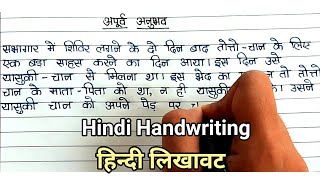 अपूर्व अनुभव
सभागार में शिविर लगाने के दो दिन बाद तोत्तो-चान के लिए
एक बड़ा साहस करने का दिन आया। इस दिन उसे
यासुकी-चान से मिलना था। इस भेद का न तो तोत्तो
चान के माता-पिता को था, न ही यासुकी उसने
यासुकी चान को अपने पेड़ पर
Hindi Handwriting
हिन्दी लिखावट